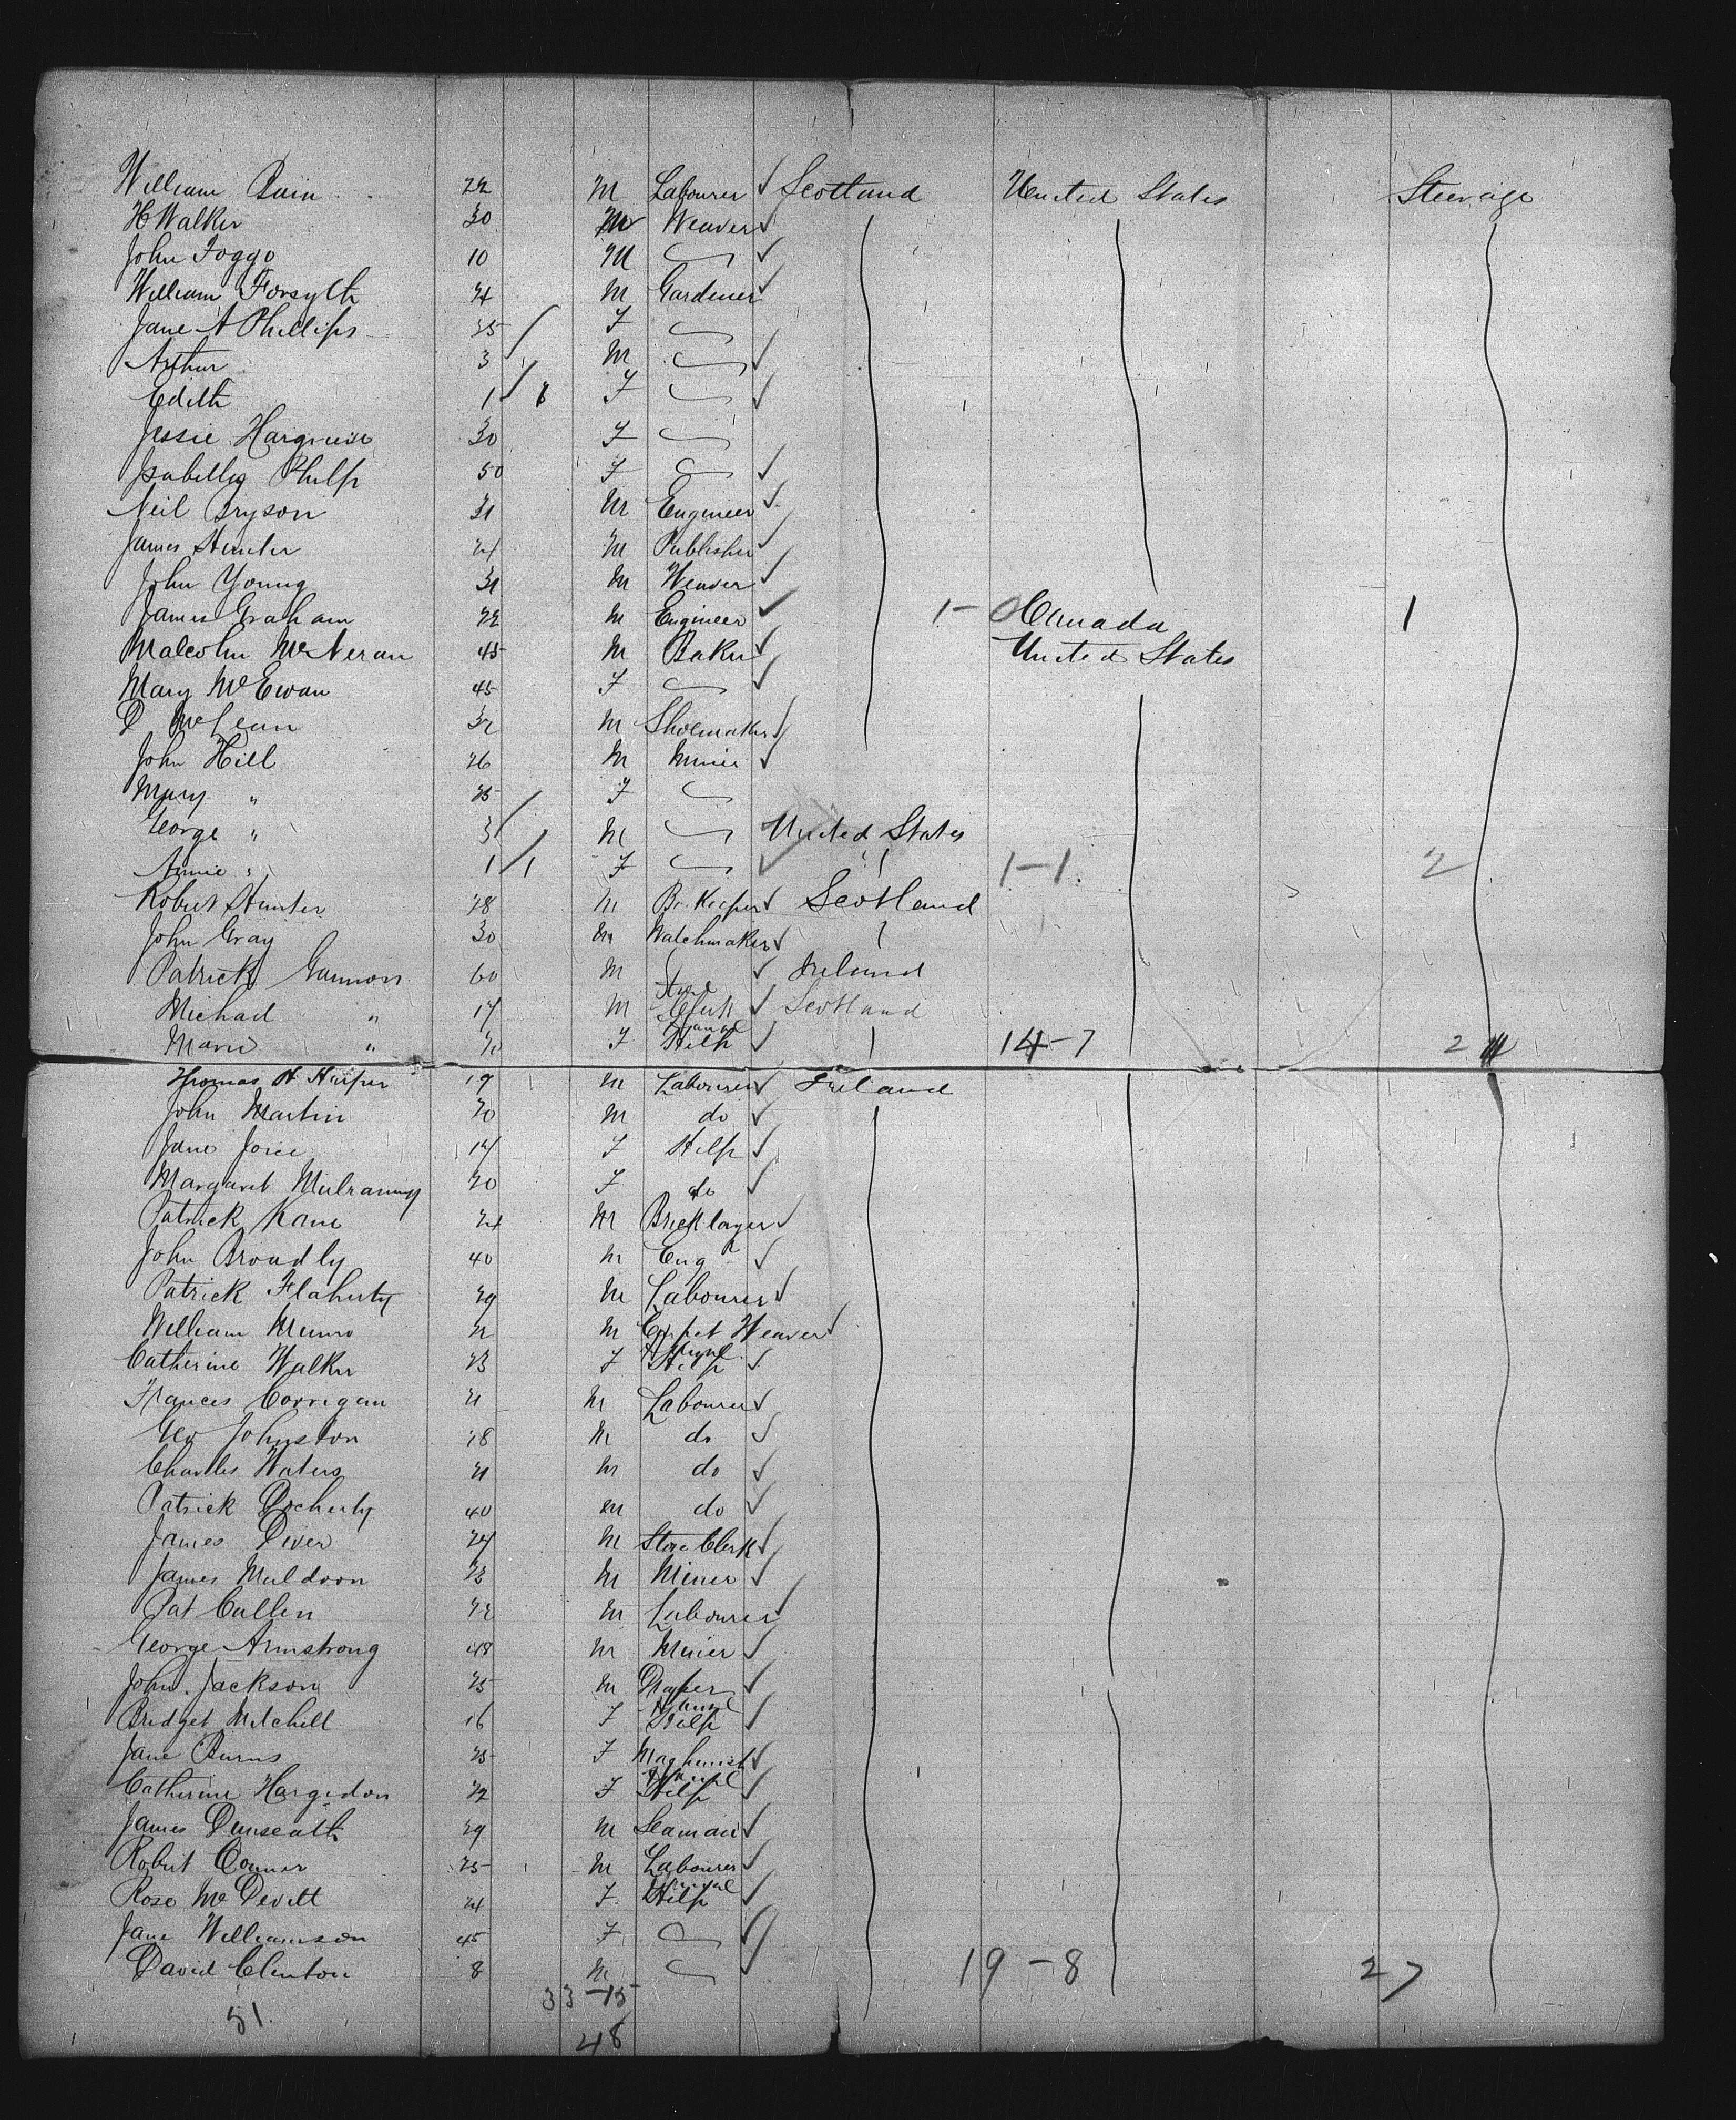 William Bain 22 M Labourer ✓ Scotland United States Steerage
H Walker 30 M Weaver ✓
John Foggo 10 M ✓
William Forsyth 24 M Gardener ✓
Jane A Phillips 35 F
Arthur 3 M ✓
Edith 1 F ✓
Jessie 30 F
Isabella Philp 50 F ✓
Neil Bryson 31 M Engineer ✓
James Hunter 21 M Publisher ✓
John Young 31 M Weaver ✓
James Graham 22 M Engineer ✓ 1 - Canada 1
Malcolm 45 M Baker ✓ United States
Mary McEwan 45 F ✓
D McLean 32 M Shoemaker ✓
John Hill 26 M Miner ✓
Mary " 25 F
George " 3 M United States
Annie " 1 F ✓ " 1-1 2
Robert Hunter 28 M Bookeeper ✓ Scotland
John Gray 30 M Watchmaker ✓
Patrick Gannon 60 M ✓ Ireland
Michael " 17 M Store Clerk ✓ Scotland
" F Help ✓ 14-7
Thomas H Harper 19 M Labourer ✓ Ireland
John Martin 20 M do ✓
Jane Joice 17 F Help ✓
Margaret 20 F do ✓
Patrick Kane 24 M Bricklayer ✓
John Broadly 40 M Engr ✓
Patrick Flaherty 29 M Labourer ✓
William Munro 22 M Carpet Weaver ✓
Catherine Walker 23 F Help ✓
Frances Corrigan 21 M Labourer ✓
Geo Johnston 28 M do ✓
Charles Waters 21 M do ✓
Patrick Docherty 40 M do ✓
James Diver 24 M Store Clerk ✓
James Muldoon 23 M Miner ✓
Pat Cullen 22 M Labourer ✓
George Armstrong 48 M Miner ✓
John Jackson 25 M Draper ✓
Bridget Mitchell 16 F Help ✓
Jane Burns 25 F Machinist ✓
Catherine Hargedon 22 F Help ✓
James Dunseath 29 M Seaman ✓
Robert Connor 25 M Labourer ✓
Rose McDevitt 24 F Help ✓
Jane Williamson 45 F ✓
David Clinton 8 M ✓ 19-8 27
33-15
51
48